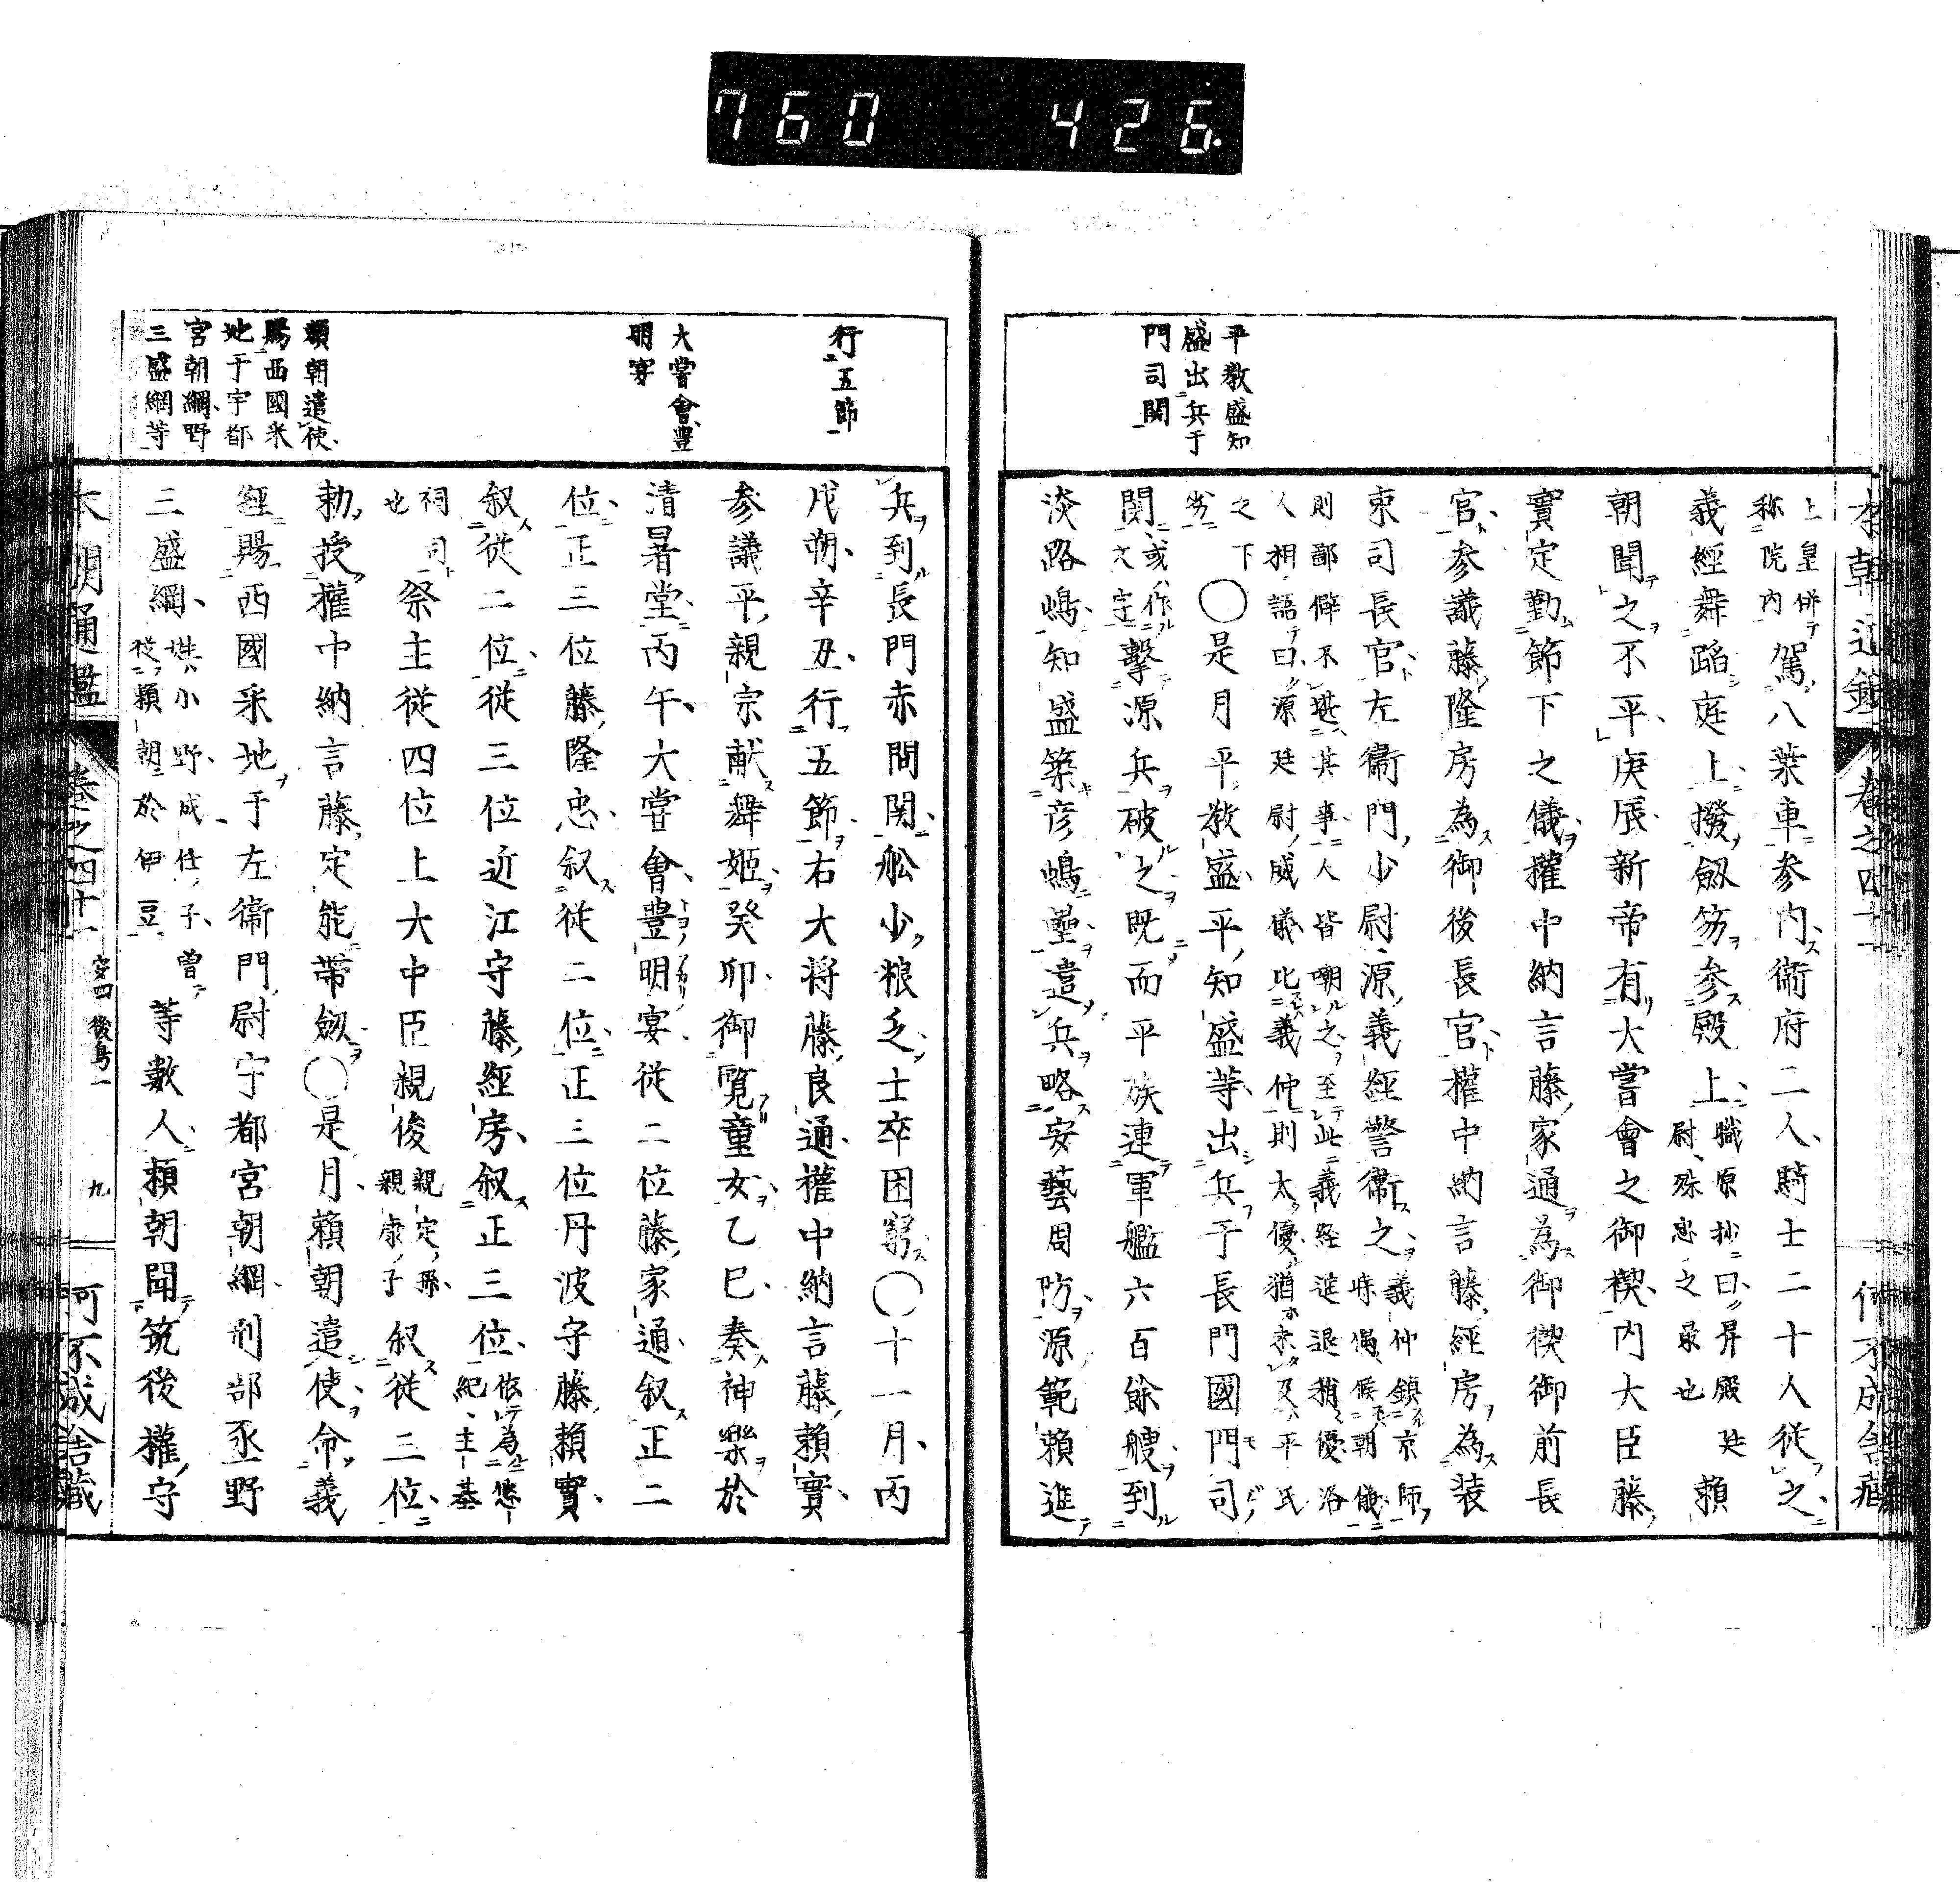 760 426.
本朝通鑑 卷之四十一
何不成舎藏
平教盛知
盛出兵于
門司関
上皇併
称院内
駕八葉車参内衞府二人騎士二十人従之
義經舞蹈庭上撥劔笏参殿上
職原抄曰昇殿廷
尉殊恩之最也
頼
朝聞之不平庚辰新帝有大嘗會之御禊内大臣藤
實定勤節下之儀權中納言藤家通為御禊御前長
官参議藤隆房為御後長官權中納言藤經房為装
束司長官左衞門少尉源義經警衞之
義仲鎮京師
時偶候朝儀
則鄙僻不堪其事人皆嘲之至此義經進退稍優洛
人相語曰源廷尉威儀比義仲則太優猶未及平氏
之下
劣
○是月平教盛平知盛等出兵于長門國門司
関
或作
文字
擊源兵破之既而平族連軍艦六百餘艘到
淡路嶋知盛築彦嶋壘遣兵略安藝周防源範頼進
行五節
大嘗會豊
明宴
頼朝遣使
賜西國釆
地于宇都
宮朝綱野
三盛綱等
兵到長門赤間関舩少粮乏士卒困窮○十一月丙
戌朔辛丑行五節右大将藤良通權中納言藤頼實
参議平親宗献舞姬癸卯御覧童女乙巳奏神樂於
清暑堂丙午大甞會豊明宴從二位藤家通叙正二
位正三位藤隆忠叙従二位正三位丹波守藤頼實
叙従二位従三位近江守藤經房叙正三位
依為悠
紀主基
祠司
也
祭主従四位上大中臣親俊
親定孫
親康子
叙従三位
勅授權中納言藤定能帯劔○是月頼朝遣使命義
經賜西國釆地于左衞門尉宇都宮朝綱刑部丞野
三盛綱
姓小野成任子曽
從頼朝於伊豆
等數人頼朝聞筑後權守
本朝通鑑 卷之四十一 安四 後鳥一 九
何不成舎藏